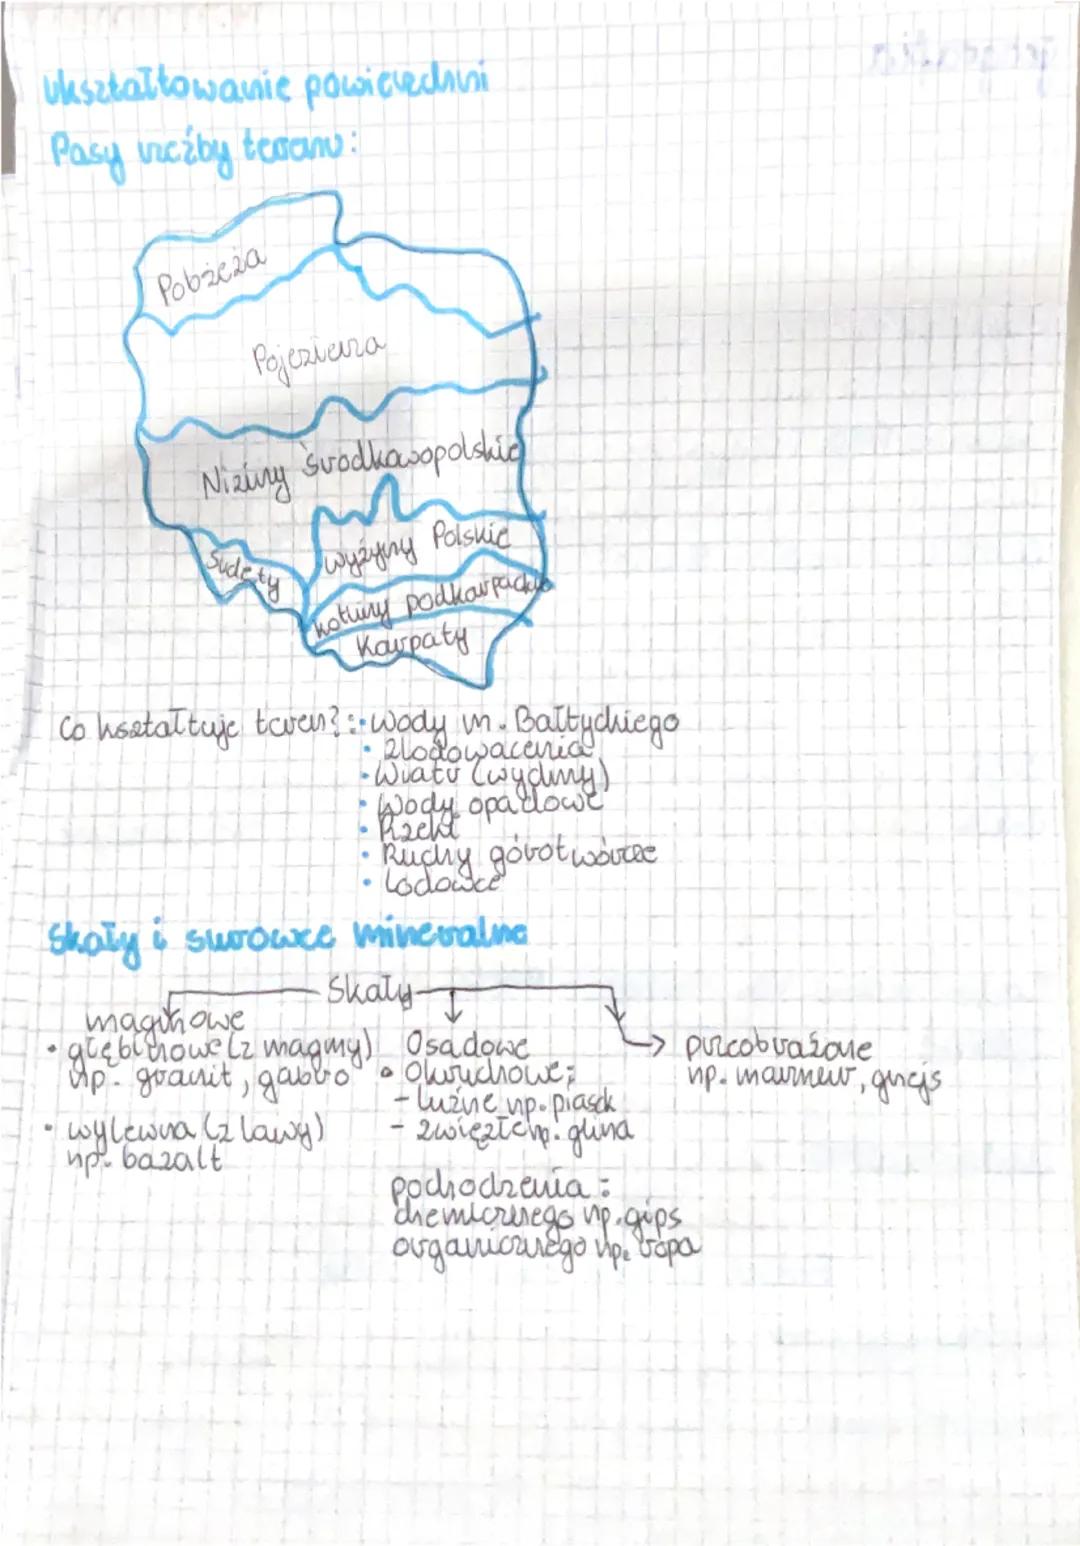 Ukształtowanie powierzchni
Pasy rzeźby terenu:
Pobżeża
Pojezierza
Niziny Środkowopolskie
Wyżyny Polskie
Sudety
Kotliny podkarpackie
Karpaty
Co kształtuje teren?: • Wody m. Bałtyckiego
• Zlodowacenia
• Wiatr (wydmy)
• Wody opadowe
• Rzeki
• Ruchy górotwórcze
• Lodowce
Skały i surowce mineralne
Skały
magmowe
• głębinowe (z magmy)
np. granit, gabro
• wylewna (z lawy)
np. bazalt
Osadowe
• Okruchowe:
- luźne np. piasek
- zwięzłe np. glina
pochodzenia:
chemicznego np. gips
organicznego np. ropa
przeobrażone
np. marmur, gnejs